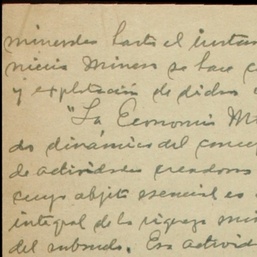 minerales hasta el instan
nicio minero se hace c
y explotación de dichos
"La Economía M
do dinámico del concep
de actividades creadoras
cuyo objeto esencial es
integral de la riqueza mi
del subsuelo. Esa activid